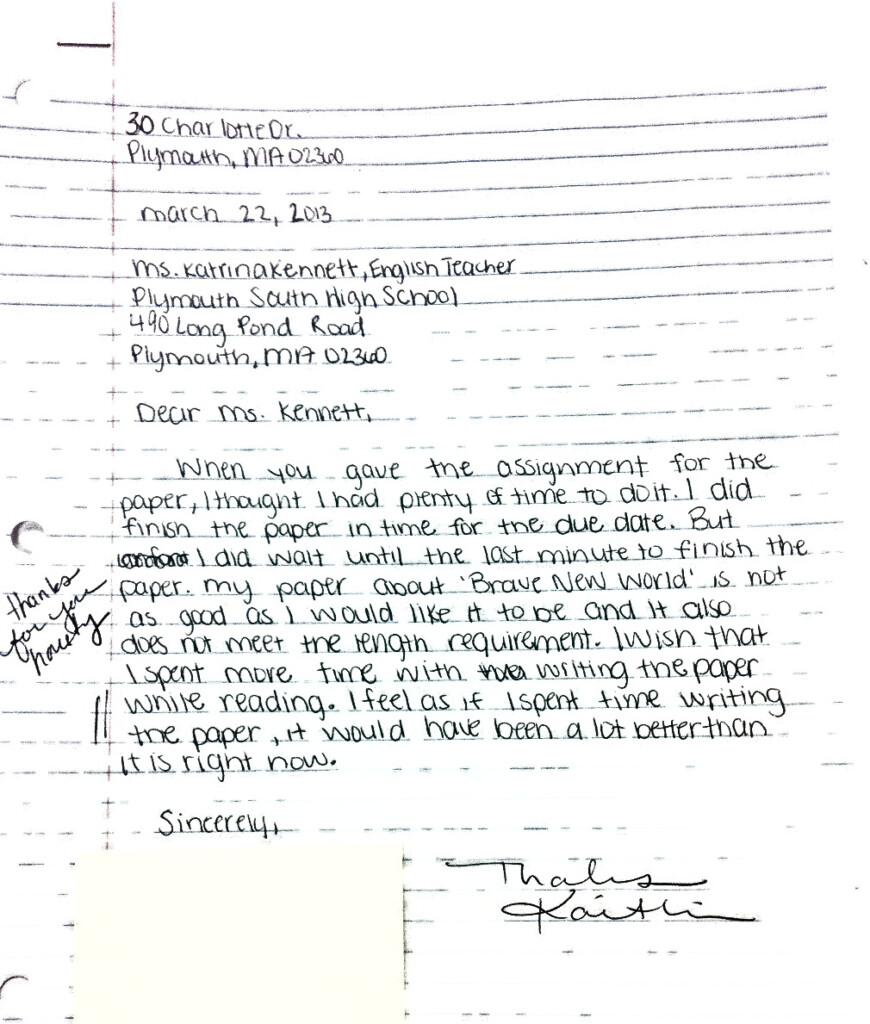 30 Charlotte Dr.
Plymouth, MA 02360
march 22, 2013
Ms. Katrina Kennett, English Teacher
Plymouth South High School
490 Long Pond Road
Plymouth, MA 02360
Dear Ms. Kennett,
When you gave the assignment for the
paper, I thought I had plenty of time to do it. I did
finish the paper in time for the due date. But
I did wait until the last minute to finish the
paper. My paper about 'Brave New World' is not
as good as I would like it to be and it also
does not meet the length requirement. I wish that
I spent more time with writing the paper
while reading. I feel as if I spent time writing
the paper, it would have been a lot better than
it is right now.
Sincerely,
thanks
for your
honesty
Kaitlin